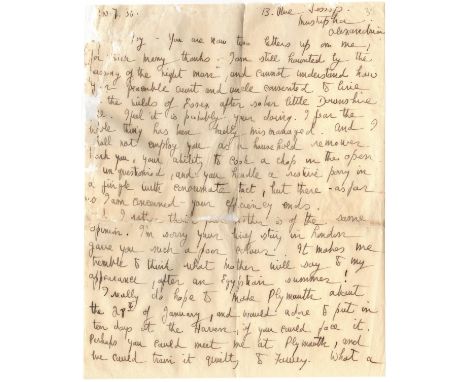 13. Rue Jessop.
Mustapha
Alexandria
- You are now two letters up on me,
for which many thanks. I am still haunted by the
of the night mare, and cannot understand how
aunt and uncle consented to live
in the wilds of Essex after sober little Devonshire
I feel it is probably your doing. I fear the
whole thing has been badly mismanaged. And I
shall not employ you as a household remover
your ability, to cook a chop in the open
is unquestioned, and you handle a restive pony in
a jingle with consummate tact, but there - as far
as I am concerned - your efficiency ends.
I rather think is of the same
opinion. I'm sorry your brief stay in London
gave you such a poor colour! It makes me
tremble to think what mother will say to my
appearance, after an Egyptian summer!
I really do hope to make Plymouth about
the 28th of January, and would adore to put in
ten days at the Haven, if you could face it.
Perhaps you could meet me at Plymouth, and
we could train it quietly to Fowey. What a